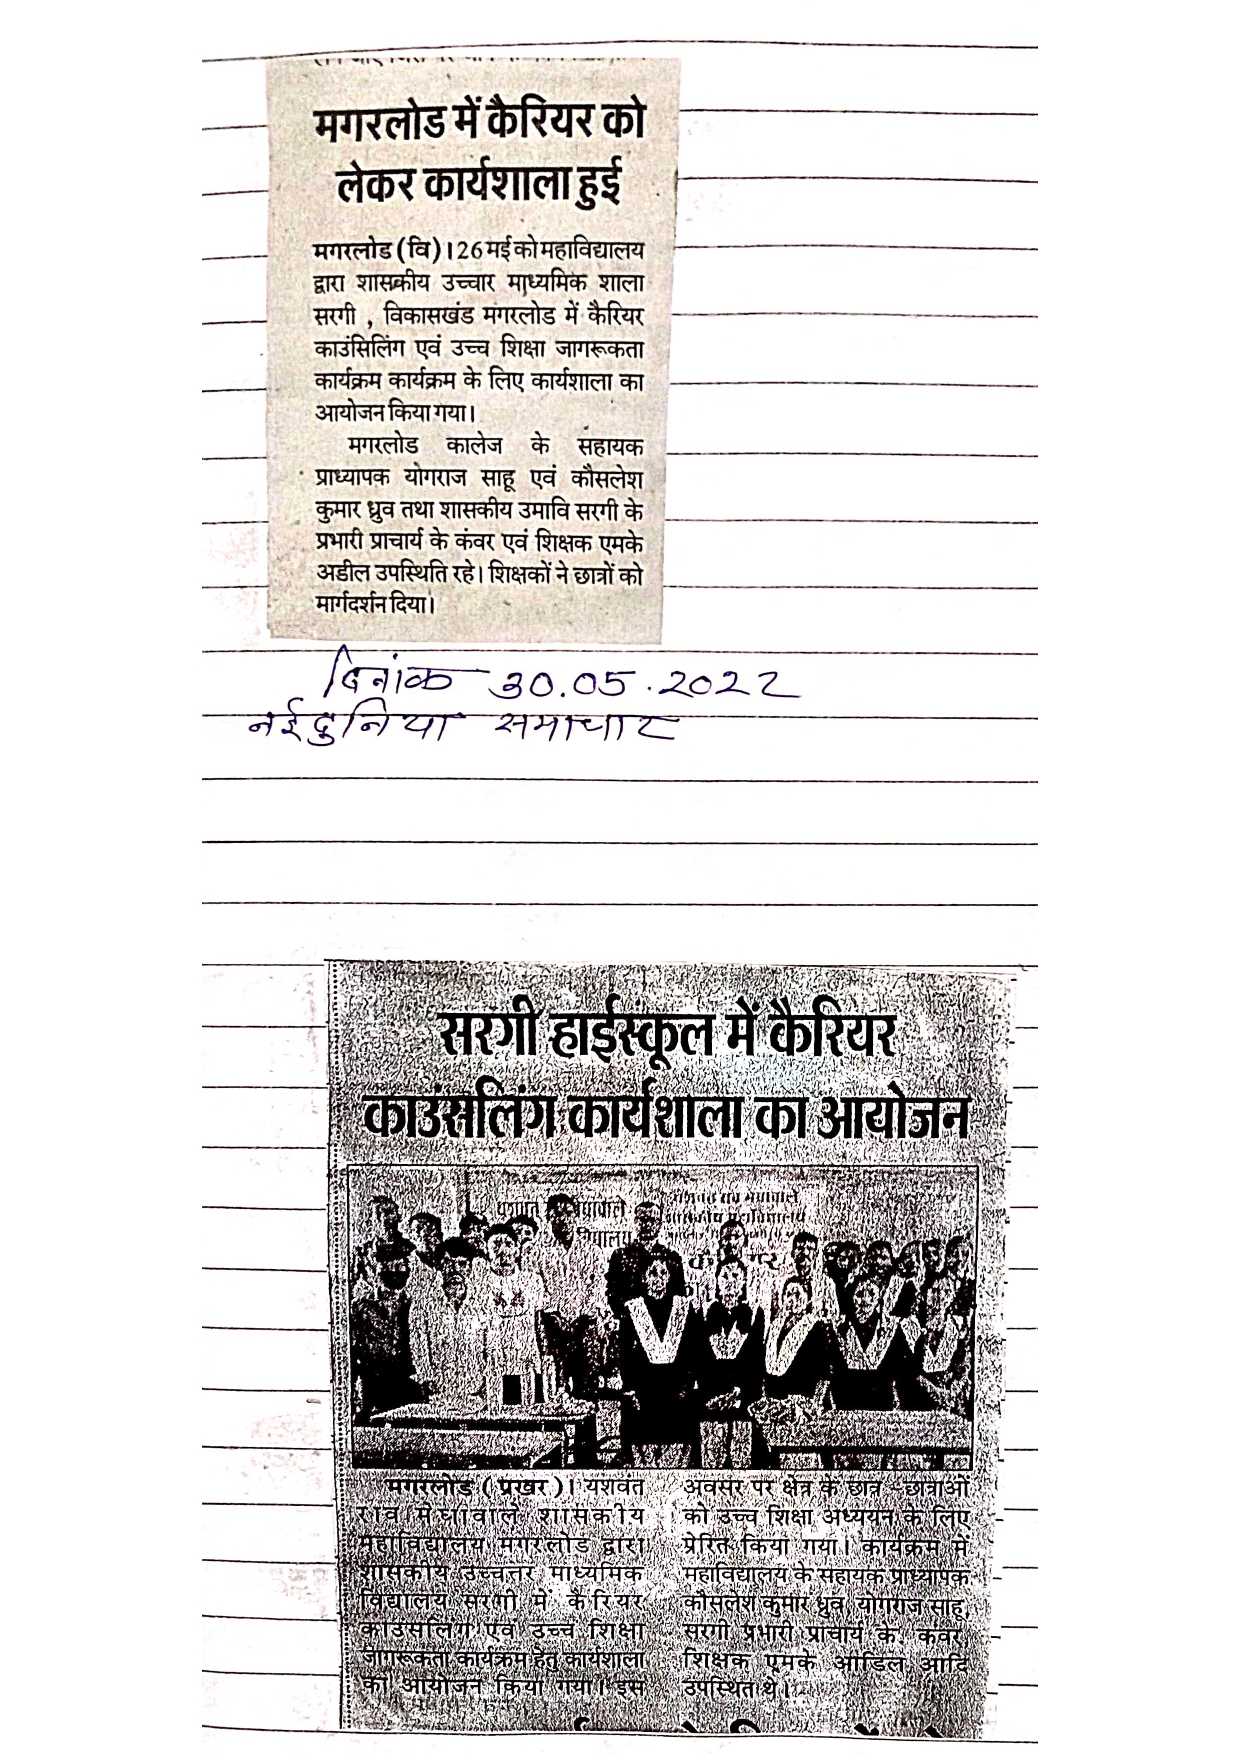 मगरलोड में कैरियर को
लेकर कार्यशाला हुई
मगरलोड (वि)। 26 मई को महाविद्यालय
द्वारा शासकीय उच्चार माध्यमिक शाला
सरगी , विकासखंड मगरलोड में कैरियर
काउंसिलिंग एवं उच्च शिक्षा जागरूकता
कार्यक्रम कार्यक्रम के लिए कार्यशाला का
आयोजन किया गया।
मगरलोड कालेज के सहायक
प्राध्यापक योगराज साहू एवं कौसलेश
कुमार ध्रुव तथा शासकीय उमावि सरगी के
प्रभारी प्राचार्य के कंवर एवं शिक्षक एमके
अडील उपस्थिति रहे। शिक्षकों ने छात्रों को
मार्गदर्शन दिया।
दिनांक 30.05.2022
नईदुनिया समाचार
सरगी हाईस्कूल में कैरियर
काउंसलिंग कार्यशाला का आयोजन
यशवंत राव मेघावाले
शासकीय महाविद्यालय
मगरलोड (प्रखर)। यशवंत
राव मेघावाले शासकीय
महाविद्यालय मगरलोड द्वारा
शासकीय उच्चत्तर माध्यमिक
विद्यालय सरगी में कैरियर
काउंसलिंग एवं उच्च शिक्षा
जागरूकता कार्यक्रम हेतु कार्यशाला
का आयोजन किया गया। इस
अवसर पर क्षेत्र के छात्र -छात्राओं
को उच्च शिक्षा अध्ययन के लिए
प्रेरित किया गया। कार्यक्रम में
महाविद्यालय के सहायक प्राध्यापक
कौसलेश कुमार ध्रुव, योगराज साहू,
सरगी प्रभारी प्राचार्य के. कंवर,
शिक्षक एमके आडिल आदि
उपस्थित थे।